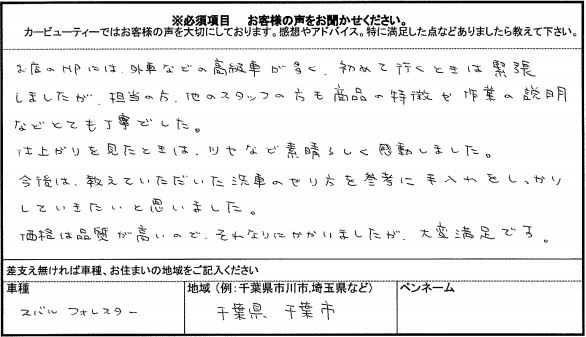 ※必須項目　お客様の声をお聞かせください。
カービューティーではお客様の声を大切にしております。感想やアドバイス。特に満足した点などありましたら教えて下さい。
お店のHPには、外車などの高級車が多く、初めて行くときは緊張
しましたが、担当の方、他のスタッフの方も商品の特徴や作業の説明
などとても丁寧でした。
仕上がりを見たときは、ツヤなど素晴らしく感動しました。
今後は、教えていただいた洗車のやり方を参考に手入れをしっかり
していきたいと思いました。
価格は品質が高いので、それなりにかかりましたが、大変満足です。
差支え無ければ車種、お住まいの地域をご記入ください
車種　地域（例：千葉県市川市,埼玉県など）　ペンネーム
スバル フォレスター　千葉県 千葉市